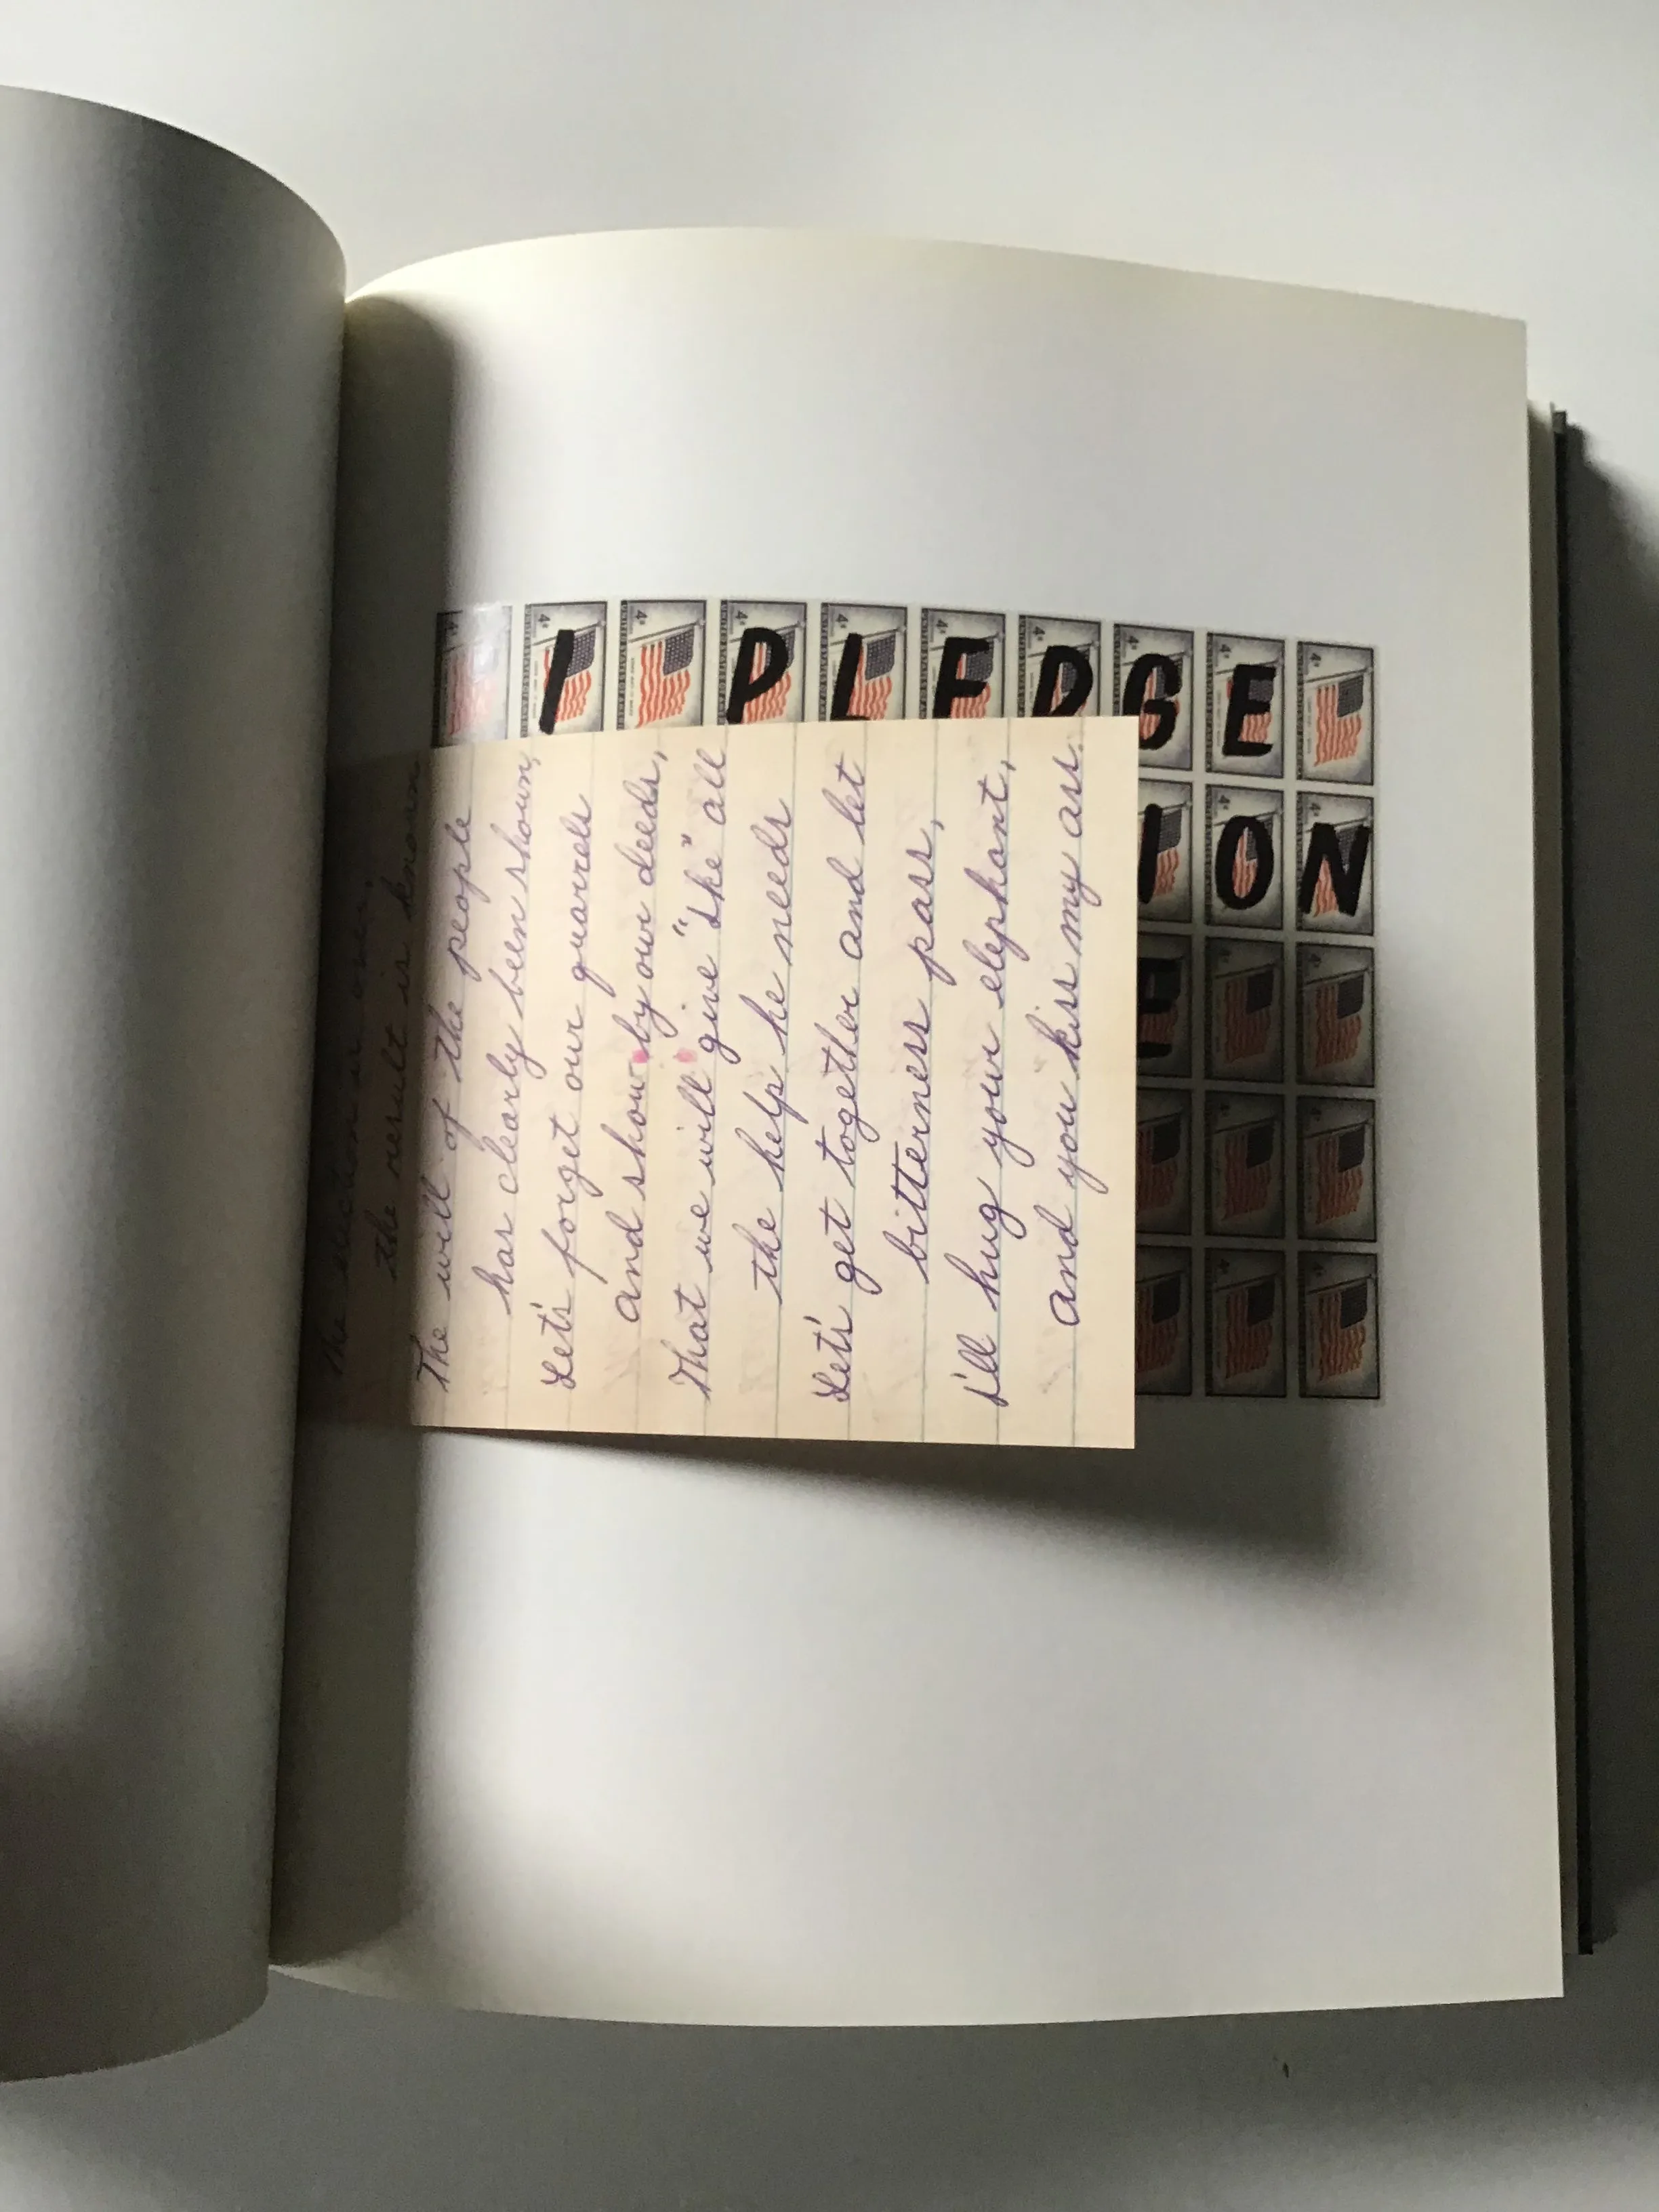 I PLEDGE
ION
The election is over,
the result is known
The will of the people
has clearly been shown,
Let's forget our quarrels
and show by our deeds,
That we will give "Ike" all
the help he needs
Let's get together and let
bitterness pass,
I'll hug your elephant,
and you kiss my ass.